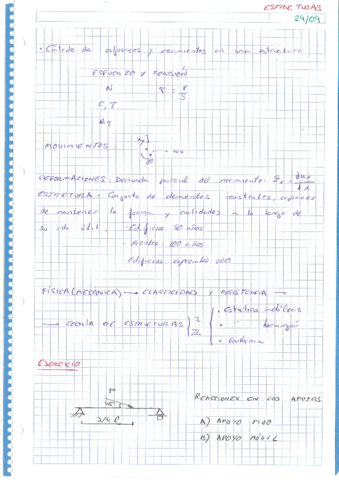 ESTRUCTURAS
24/09
· Cálculo de esfuerzos y movimientos en una estructura
ESFUERZO Y TENSIÓN
N
C, T
MOVIMIENTOS:
DEFORMACIONES: Derivada parcial del movimiento:
ESTRUCTURA: Conjunto de elementos resistentes, capaces
de mantener la forma y cualidades a lo largo de
su vida útil. · Edificios 50 años
· Puentes 100 años
Edificios especiales 200
FÍSICA (MECÁNICA) → ELASTICIDAD Y RESISTENCIA →
→ TEORÍA DE ESTRUCTURAS
I
II
· Estructuras metálicas
· " hormigón
EJERCICIO
F
45°
3/4 l
REACCIONES EN LOS APOYOS
A) APOYO FIJO
B) APOYO MÓVIL